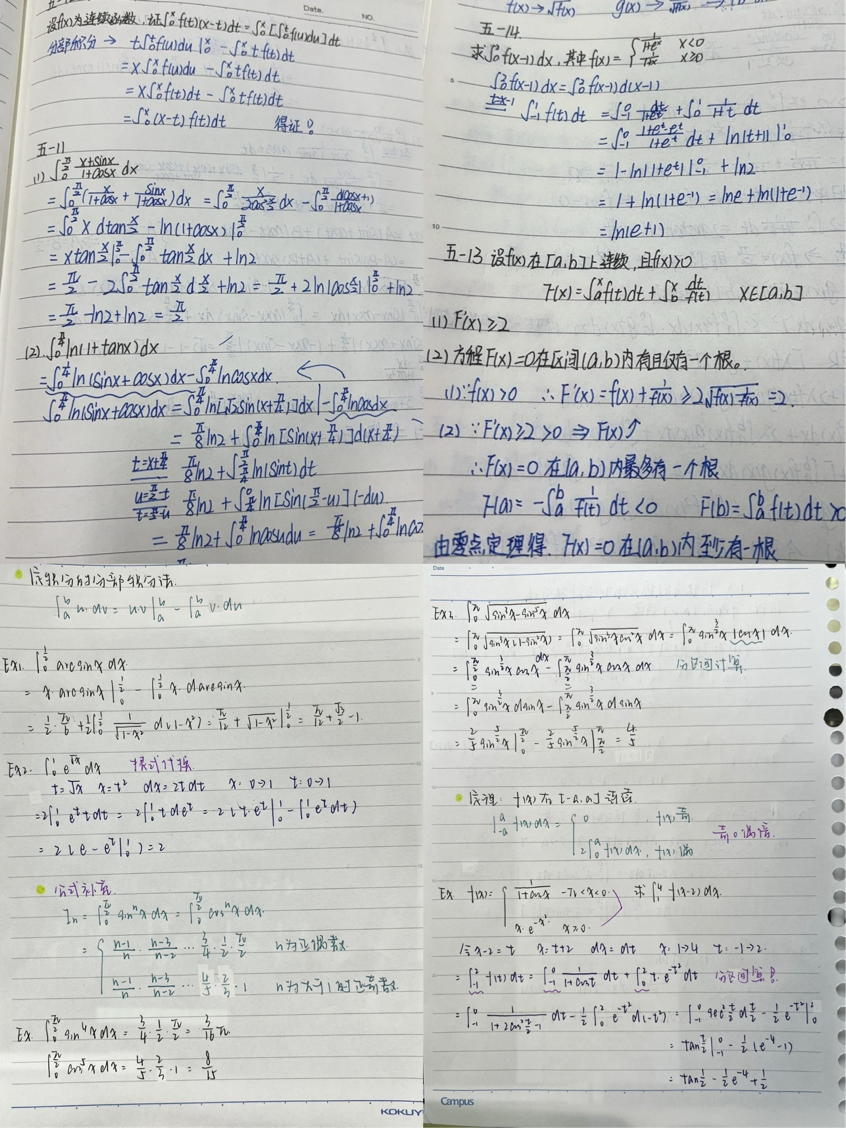 Date. NO.
设f(x)为连续函数,证∫₀ˣf(t)(x-t)dt=∫₀ˣ[∫₀ᵗf(u)du]dt
分部积分 → t∫₀ᵗf(u)du|₀ˣ - ∫₀ˣtf(t)dt
=x∫₀ˣf(u)du -∫₀ˣtf(t)dt
=x∫₀ˣf(t)dt -∫₀ˣtf(t)dt
=∫₀ˣ(x-t)f(t)dt 得证!
五-11
(1) ∫₀^(π/2) (x+sinx)/(1+cosx) dx
=∫₀^(π/2)(x/(1+cosx) + sinx/(1+cosx))dx =∫₀^(π/2) x/(2cos²(x/2)) dx -∫₀^(π/2) d(cosx+1)/(1+cosx)
=∫₀^(π/2) x dtan(x/2) -ln(1+cosx)|₀^(π/2)
=xtan(x/2)|₀^(π/2) -∫₀^(π/2) tan(x/2)dx +ln2
=π/2 -2∫₀^(π/2) tan(x/2) d(x/2) +ln2 = π/2 +2ln|cos(x/2)||₀^(π/2) +ln2
=π/2 -ln2+ln2 = π/2
(2) ∫₀^(π/4) ln(1+tanx)dx
=∫₀^(π/4) ln(sinx+cosx)dx-∫₀^(π/4) lncosxdx.
∫₀^(π/4) ln(sinx+cosx)dx =∫₀^(π/4) ln[√2sin(x+π/4)]dx |-∫₀^(π/4) lncosdx
= π/8 ln2 +∫₀^(π/4) ln[sin(x+π/4)]d(x+π/4)
t=x+π/4 π/8 ln2 +∫_(π/4)^(π/2) ln(sint)dt
u=π/2-t t=π/2-u π/8 ln2 +∫_(π/4)^0 ln[sin(π/2-u)](-du)
= π/8 ln2+∫₀^(π/4) lncosudu = π/8 ln2 +∫₀^(π/4) lncos
f(x)→√f(x) g(x)→
五-14
求∫₀²f(x-1)dx,其中f(x)={1/(1+eˣ) x<0
1/(1+x) x≥0
∫₀²f(x-1)dx=∫₀²f(x-1)d(x-1)
t=x-1 ∫₋₁¹f(t)dt =∫₋₁⁰ dt/(1+eᵗ) +∫₀¹ 1/(1+t) dt
=∫₋₁⁰ (1+eᵗ-eᵗ)/(1+eᵗ) dt + ln|t+1||₀¹
=1-ln|1+eᵗ||₋₁⁰ +ln2
=1+ln(1+e⁻¹) =lne+ln(1+e⁻¹)
=ln(e+1)
五-13 设f(x)在[a,b]上连续,且f(x)>0
F(x)=∫ₐˣf(t)dt+∫_bˣ dt/f(t) x∈[a,b]
(1) F'(x)≥2
(2) 方程F(x)=0在区间(a,b)内有且仅有一个根。
(1)∵f(x)>0 ∴F'(x)=f(x)+1/f(x) ≥2√(f(x)·1/f(x)) =2.
(2) ∵F'(x)≥2>0 ⇒F(x)↑
∴F(x)=0在(a,b)内最多有一个根
F(a)= -∫ₐᵇ 1/f(t) dt <0 F(b)=∫ₐᵇf(t)dt>0
由零点定理得. F(x)=0在(a,b)内至少有一根
定积分的分部积分法.
∫ₐᵇ u·dv = u·v|ₐᵇ -∫ₐᵇ v·du
Ex1. ∫₀^(1/2) arcsinx dx.
= x·arcsinx|₀^(1/2) -∫₀^(1/2) x·darcsinx.
= 1/2·π/6 +1/2∫₀^(1/2) 1/√(1-x²) d(1-x²) = π/12 +√(1-x²)|₀^(1/2) = π/12 +√3/2 -1.
Ex2. ∫₀¹ e^√x dx 换式计换
t=√x x=t² dx=2tdt x: 0→1 t: 0→1
=2∫₀¹ eᵗ·tdt = 2∫₀¹ t·deᵗ = 2(t·eᵗ|₀¹ -∫₀¹eᵗdt)
= 2(e-eᵗ|₀¹) =2
公式补充.
Iₙ= ∫₀^(π/2) sinⁿxdx =∫₀^(π/2) cosⁿxdx.
={(n-1)/n·(n-3)/(n-2)···3/4·1/2·π/2 n为正偶数.
(n-1)/n·(n-3)/(n-2)···4/5·2/3·1 n为大于1的正奇数.
Ex. ∫₀^(π/2) sin⁴xdx = 3/4·1/2·π/2 = 3/16 π
∫₀^(π/2) cos⁵xdx = 4/5·2/3·1 = 8/15
KOKUY
Date
Ex2. ∫₀^π √(sin³x-sin⁵x) dx
=∫₀^π √(sin³x(1-sin²x)) =∫₀^π √(sin³xcos²x) dx =∫₀^π sin^(3/2)x |cosx| dx.
=∫₀^(π/2) sin^(3/2)x cosx dx -∫_(π/2)^π sin^(3/2)x cosx dx 分区间计算
=∫₀^(π/2) sin^(3/2)x dsinx -∫_(π/2)^π sin^(3/2)x dsinx
= 2/5 sin^(5/2)x|₀^(π/2) - 2/5 sin^(5/2)x|_(π/2)^π = 4/5
定理: f(x)在[-a,a]连续
∫₋ₐᵃ f(x)dx={0 , f(x)奇
2∫₀ᵃf(x)dx, f(x)偶
奇0偶倍.
Ex f(x)={1/(1+cosx) -π<x<0 求∫₁⁴f(x-2)dx.
x·e^(-x²) x≥0
令x-2=t x=t+2 dx=dt x: 1→4 t: -1→2.
=∫₋₁²f(t)dt =∫₋₁⁰ 1/(1+cost) dt +∫₀² t·e^(-t²)dt 分区间算
=∫₋₁⁰ 1/(1+2cos²(t/2)-1) dt -1/2∫₀² e^(-t²)d(-t²) =∫₋₁⁰ sec²(t/2) d(t/2) -1/2 e^(-t²)|₀²
= tan(t/2)|₋₁⁰ -1/2(e⁻⁴-1)
= tan1/2 -1/2e⁻⁴+1/2
Campus